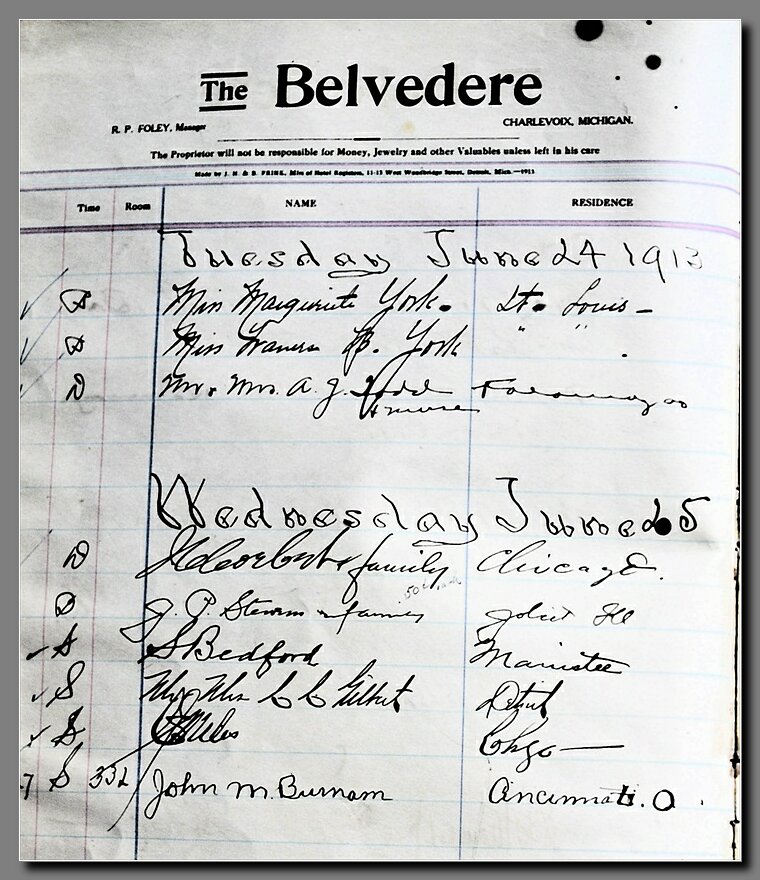 The Belvedere
R. P. FOLEY, Manager CHARLEVOIX, MICHIGAN.
The Proprietor will not be responsible for Money, Jewelry and other Valuables unless left in his care
Made by J. H. & B. PRINK, Mfrs of Hotel Registers, 11-13 West Woodbridge Street, Detroit, Mich.—1913
Time Room NAME RESIDENCE
Tuesday June 24 1913
D Miss Marguerite York. St. Louis –
D Miss Frances B. York " "
D Mr. Mrs. A. J. Todd Kalamazoo
& nurse
Wednesday June 25
D & family Chicago.
D J. P. Stevens & family Joliet Ill
S S Bedford Manistee
S Mr & Mrs C C Gilbert Detroit
S Miles Chgo —
7 S 332 John M. Burnam Cincinnati. O.